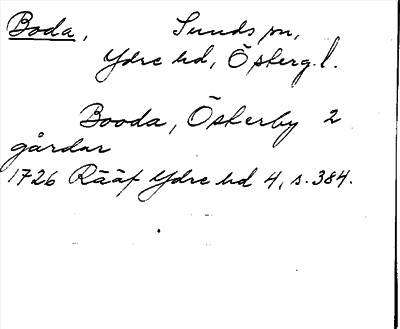 Boda, Sunds sn,
Ydre hd, Österg.l.
Booda, Österby 2
gårdar
1726 Rääf Ydre hd 4, s. 384.